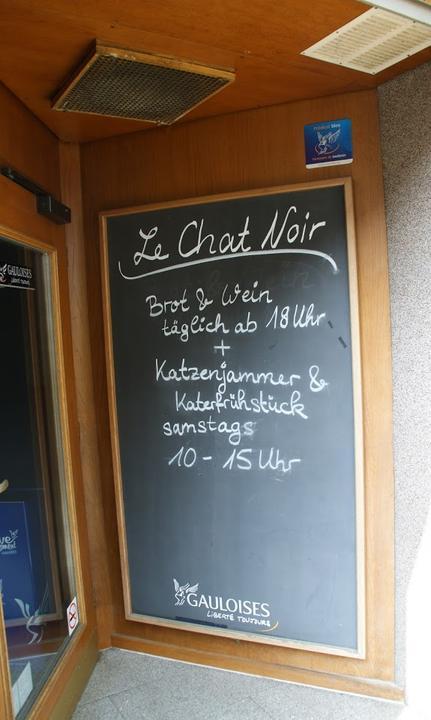 Le Chat Noir
Brot & Wein
täglich ab 18 Uhr
+
Katzenjammer &
Katerfrühstück
samstags
10 - 15 Uhr
GAULOISES
LIBERTÉ TOUJOURS
GAULOISES
LIBERTÉ TOUJOURS